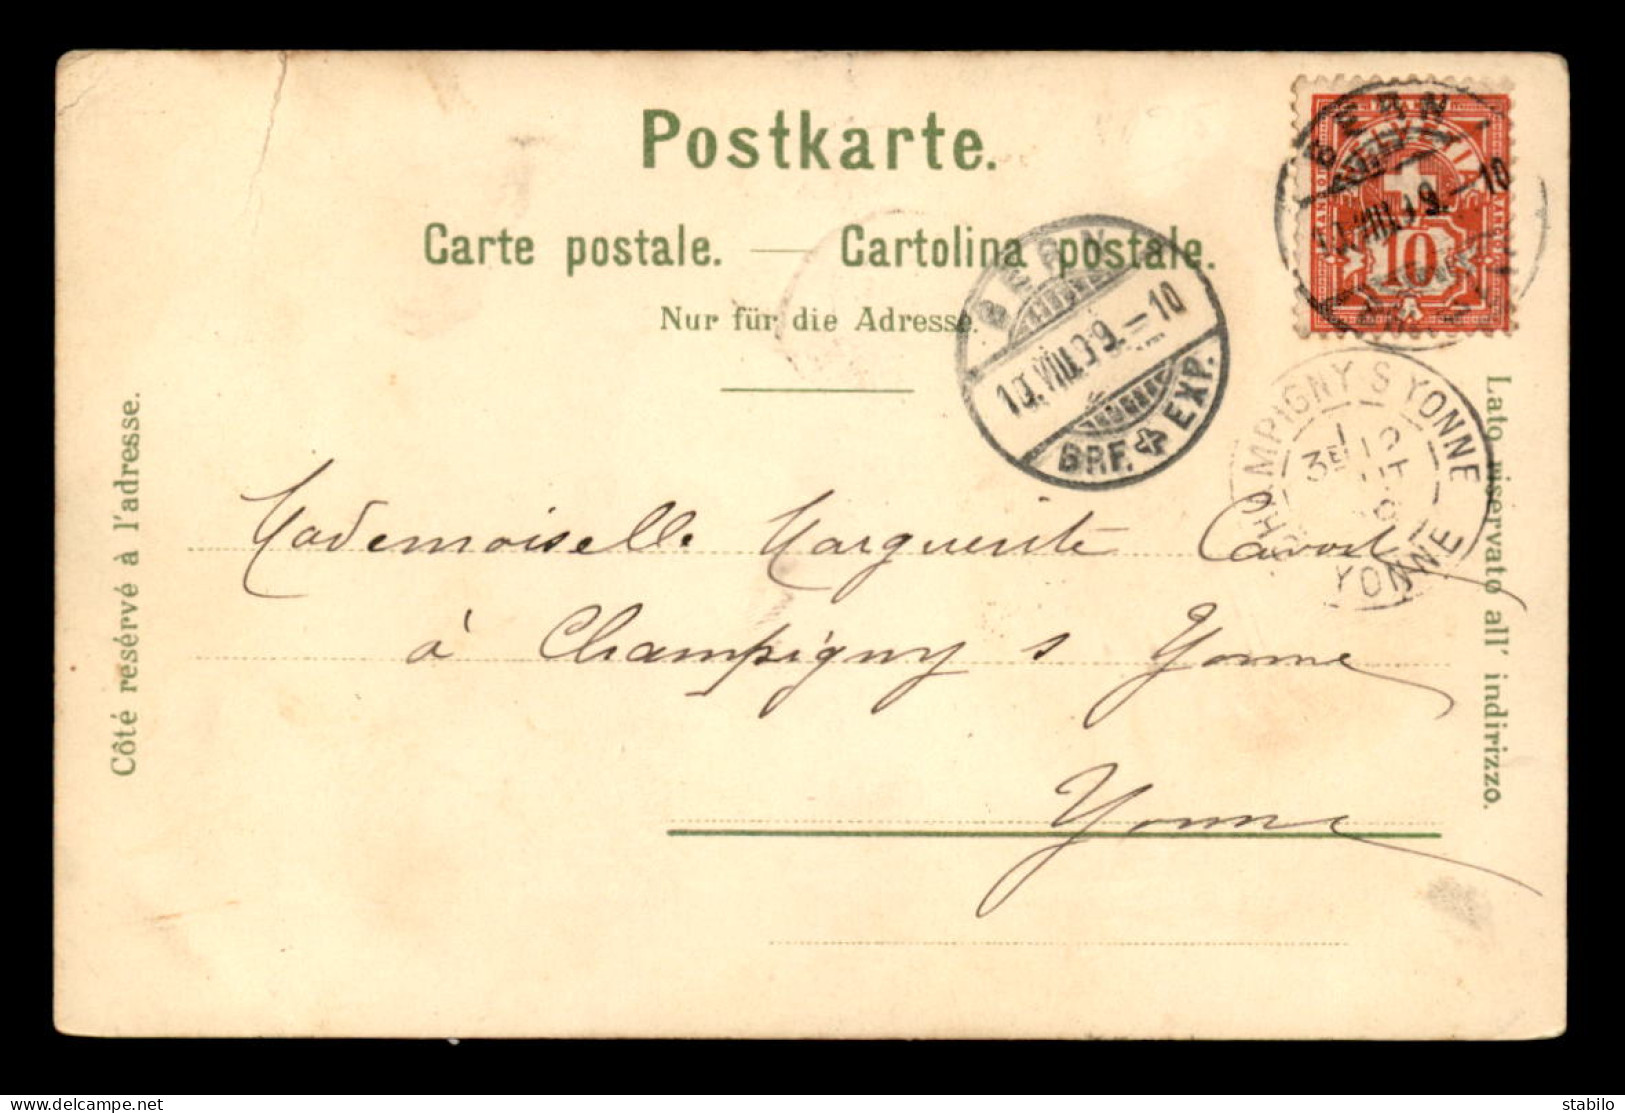 Postkarte.
Carte postale. — Cartolina postale.
Nur für die Adresse.
Côté resérvé à l'adresse.
Lato riservato all' indirizzo.
BERN
10
BERN
10.VIII.99.–10
BRF. EXP.
CHAMPIGNY S YONNE
3E
YONNE
Mademoiselle Marguerite
à Champigny s Yonne
Yonne
delcampe.net
stabilo